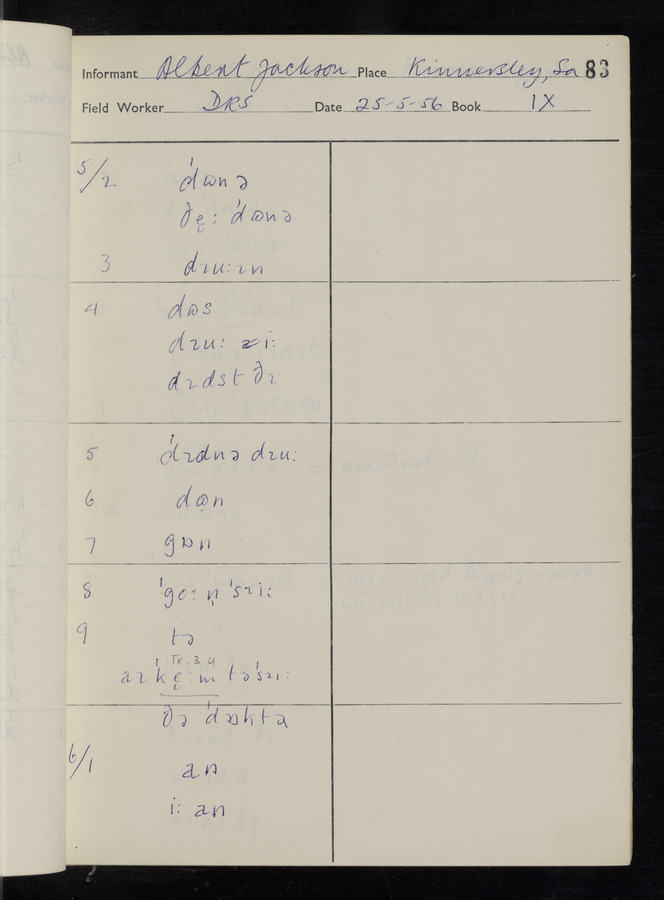 Informant Albert Jackson Place Kinnersley, Sa 83
Field Worker DRS Date 25-5-56 Book IX
5/2 ˈdɷnə
ðę: ˈdɷnə
3 dɪu:ɪn
4 dɷs
dɪu: zi:
dɪdst ðɪ
5 ˈdɪdnə dɪu:
6 dɷ̣n
7 gɒn
8 ˈgo: ṇ ˈsɪi:
9 tə
Tr. 3.4
aɪ ˈkę:m təˈsɪi:
ðə ˈdɒktə
6/1 an
i: an